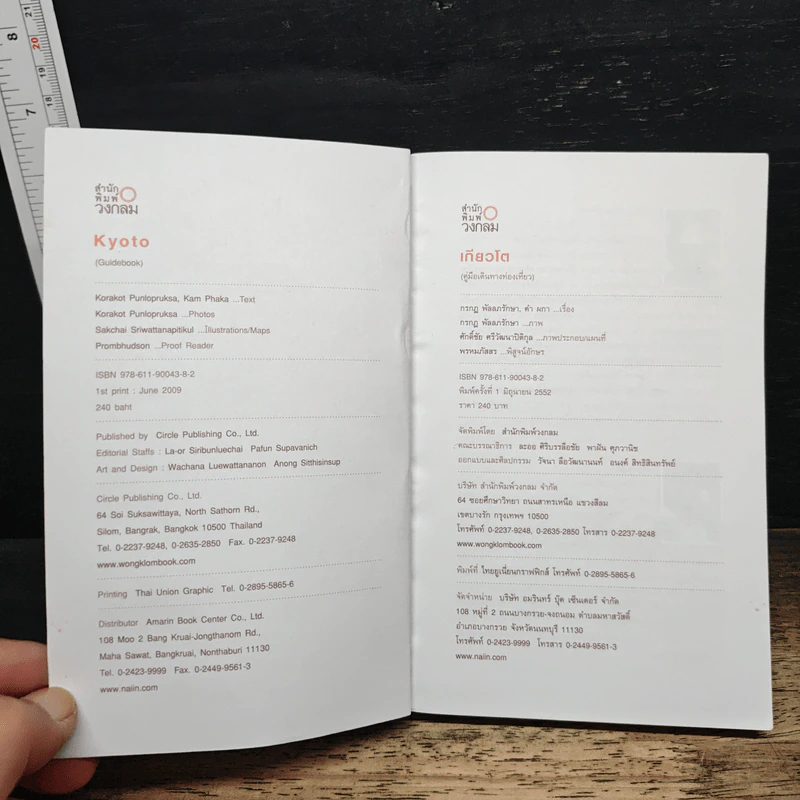 8
7
21
20
19
18
สำนัก
พิมพ์
วงกลม
Kyoto
(Guidebook)
Korakot Punlopruksa, Kam Phaka ...Text
Korakot Punlopruksa ...Photos
Sakchai Sriwattanapitikul ...Illustrations/Maps
Prombhudson ...Proof Reader
ISBN 978-611-90043-8-2
1st print : June 2009
240 baht
Published by Circle Publishing Co., Ltd.
Editorial Staffs : La-or Siribunluechai Pafun Supavanich
Art and Design : Wachana Luewattananon Anong Sitthisinsup
Circle Publishing Co., Ltd.
64 Soi Suksawittaya, North Sathorn Rd.,
Silom, Bangrak, Bangkok 10500 Thailand
Tel. 0-2237-9248, 0-2635-2850 Fax. 0-2237-9248
www.wongklombook.com
Printing Thai Union Graphic Tel. 0-2895-5865-6
Distributor Amarin Book Center Co., Ltd.
108 Moo 2 Bang Kruai-Jongthanom Rd.,
Maha Sawat, Bangkruai, Nonthaburi 11130
Tel. 0-2423-9999 Fax. 0-2449-9561-3
www.naiin.com
สำนัก
พิมพ์
วงกลม
เกียวโต
(คู่มือเดินทางท่องเที่ยว)
กรกฎ พัลลภรักษา, คำ ผกา ...เรื่อง
กรกฎ พัลลภรักษา ...ภาพ
ศักดิ์ชัย ศรีวัฒนาปิติกุล ...ภาพประกอบ/แผนที่
พรหมภัสสร ...พิสูจน์อักษร
ISBN 978-611-90043-8-2
พิมพ์ครั้งที่ 1 มิถุนายน 2552
ราคา 240 บาท
จัดพิมพ์โดย สำนักพิมพ์วงกลม
คณะบรรณาธิการ ละออ ศิริบรรลือชัย พาฝัน ศุภวานิช
ออกแบบและศิลปกรรม วัจนา ลือวัฒนานนท์ อนงค์ สิทธิสินทรัพย์
บริษัท สำนักพิมพ์วงกลม จำกัด
64 ซอยศึกษาวิทยา ถนนสาทรเหนือ แขวงสีลม
เขตบางรัก กรุงเทพฯ 10500
โทรศัพท์ 0-2237-9248, 0-2635-2850 โทรสาร 0-2237-9248
www.wongklombook.com
พิมพ์ที่ ไทยยูเนี่ยนกราฟฟิกส์ โทรศัพท์ 0-2895-5865-6
จัดจำหน่าย บริษัท อมรินทร์ บุ๊ค เซ็นเตอร์ จำกัด
108 หมู่ที่ 2 ถนนบางกรวย-จงถนอม ตำบลมหาสวัสดิ์
อำเภอบางกรวย จังหวัดนนทบุรี 11130
โทรศัพท์ 0-2423-9999 โทรสาร 0-2449-9561-3
www.naiin.com